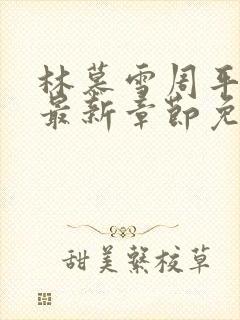 林慕雪周平
最新章节免
甜美系校草